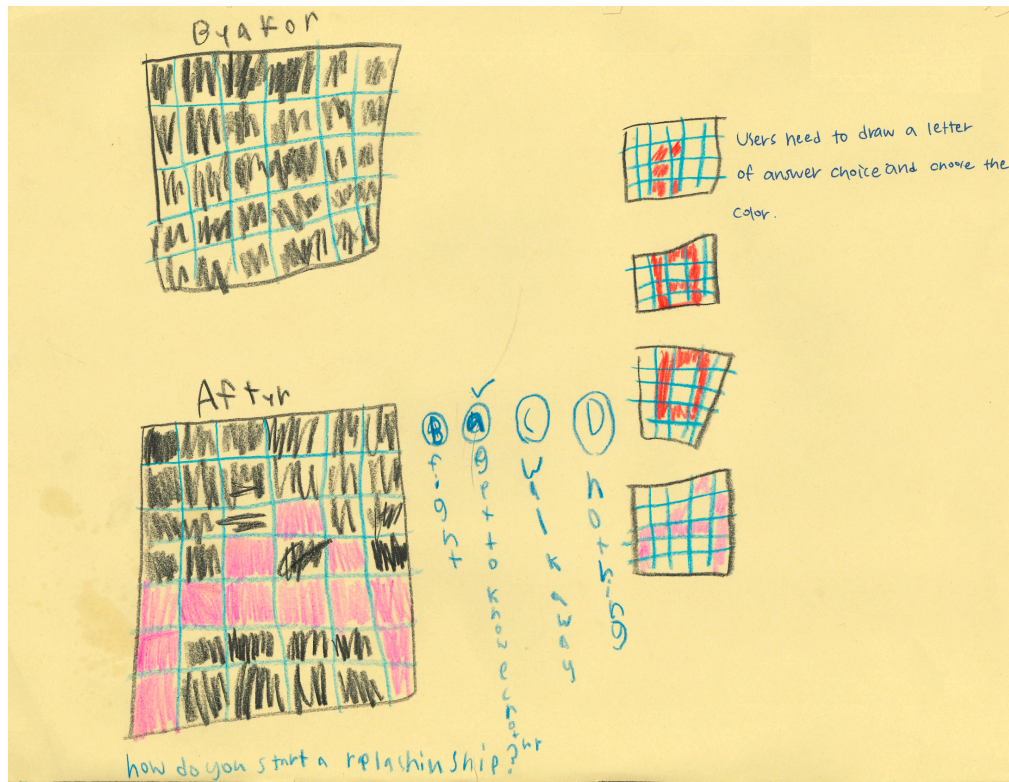 Byakor
Users need to draw a letter
of answer choice and choose the
color.
Aftyr
B fight
a get to know echothr
C walk away
D nothing
how do you start a rplachinship?